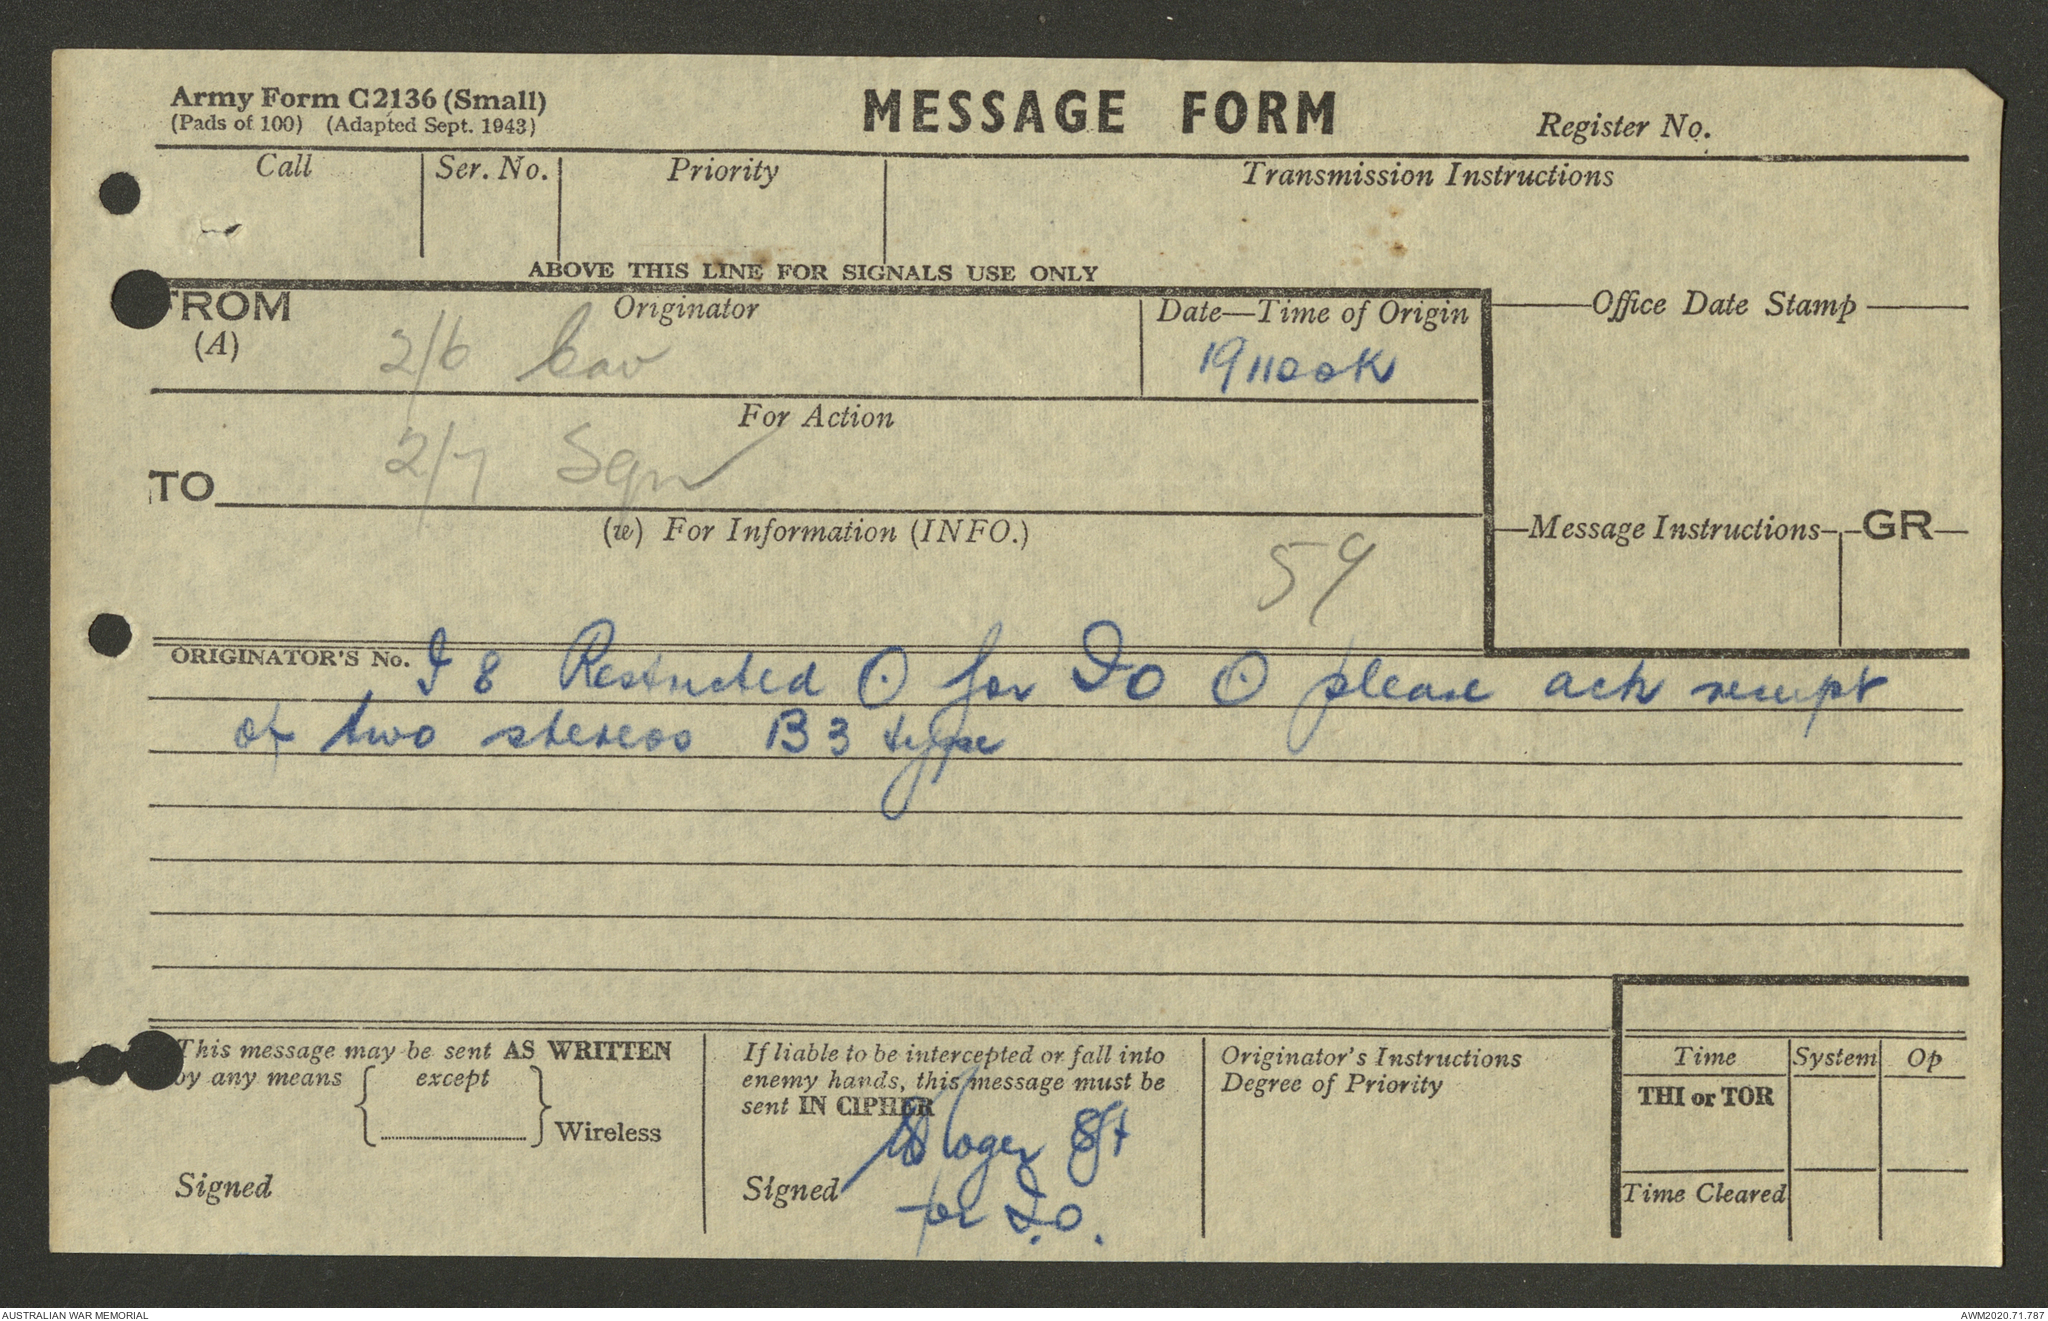 Army Form C2136 (Small)
(Pads of 100) (Adapted Sept. 1943)
MESSAGE FORM
Register No.
Call Ser. No. Priority Transmission Instructions
ABOVE THIS LINE FOR SIGNALS USE ONLY
FROM Originator Date—Time of Origin Office Date Stamp
(A) 2/6 Cav 191100K
For Action
TO 2/7 Sqn
(w) For Information (INFO.) Message Instructions GR
59
ORIGINATOR'S No. I 8 Restricted O for IO O please ack receipt
of two stereos B3 type
This message may be sent AS WRITTEN
by any means except
Wireless
Signed
If liable to be intercepted or fall into
enemy hands, this message must be
sent IN CIPHER
Sgt
Signed
for I.O.
Originator's Instructions
Degree of Priority
Time System Op
THI or TOR
Time Cleared
AUSTRALIAN WAR MEMORIAL AWM2020.71.787